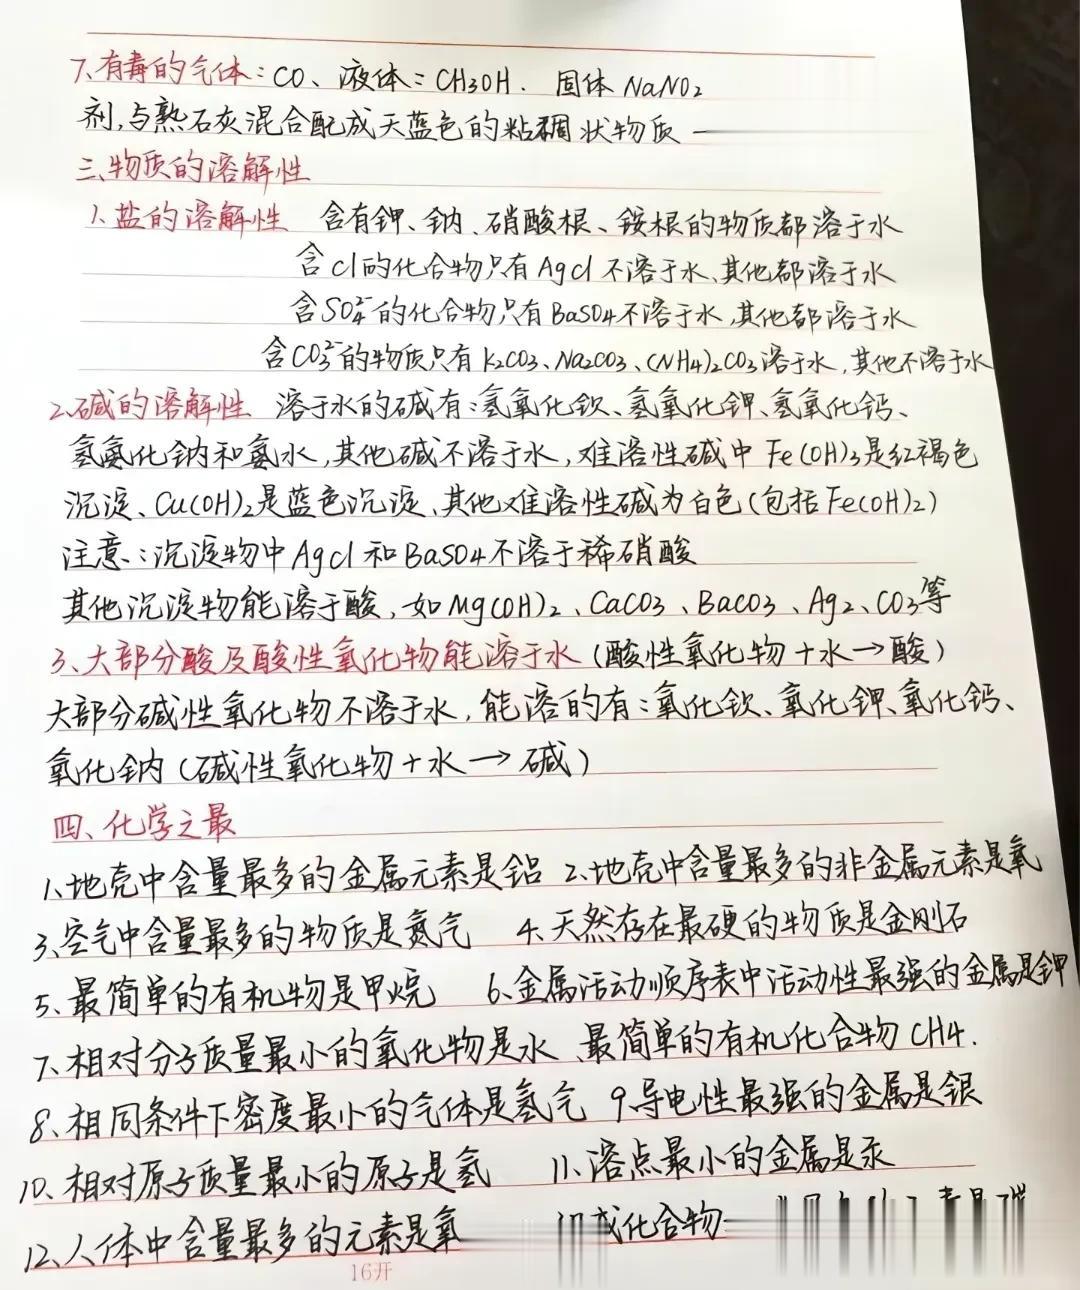 7、有毒的气体：CO、液体：CH3OH. 固体 NaNO2
剂，与熟石灰混合配成天蓝色的粘稠状物质
三、物质的溶解性
1、盐的溶解性 含有钾、钠、硝酸根、铵根的物质都溶于水
含Cl的化合物只有AgCl不溶于水、其他都溶于水
含SO₄²⁻的化合物只有BaSO4不溶于水，其他都溶于水
含CO₃²⁻的物质只有K2CO3、Na2CO3、(NH4)2CO3溶于水，其他不溶于水
2、碱的溶解性 溶于水的碱有：氢氧化钡、氢氧化钾、氢氧化钙、
氢氧化钠和氨水，其他碱不溶于水，难溶性碱中Fe(OH)3是红褐色
沉淀、Cu(OH)2是蓝色沉淀、其他难溶性碱为白色(包括Fe(OH)2)
注意：沉淀物中AgCl和BaSO4不溶于稀硝酸
其他沉淀物能溶于酸，如Mg(OH)2、CaCO3、BaCO3、Ag2、CO3等
3、大部分酸及酸性氧化物能溶于水(酸性氧化物+水→酸)
大部分碱性氧化物不溶于水，能溶的有：氧化钡、氧化钾、氧化钙、
氧化钠(碱性氧化物+水→碱)
四、化学之最
1、地壳中含量最多的金属元素是铝 2、地壳中含量最多的非金属元素是氧
3、空气中含量最多的物质是氮气 4、天然存在最硬的物质是金刚石
5、最简单的有机物是甲烷 6、金属活动顺序表中活动性最强的金属是钾
7、相对分子质量最小的氧化物是水、最简单的有机化合物CH4.
8、相同条件下密度最小的气体是氢气 9、导电性最强的金属是银
10、相对原子质量最小的原子是氢 11、溶点最小的金属是汞
12、人体中含量最多的元素是氧 成化合物
16开